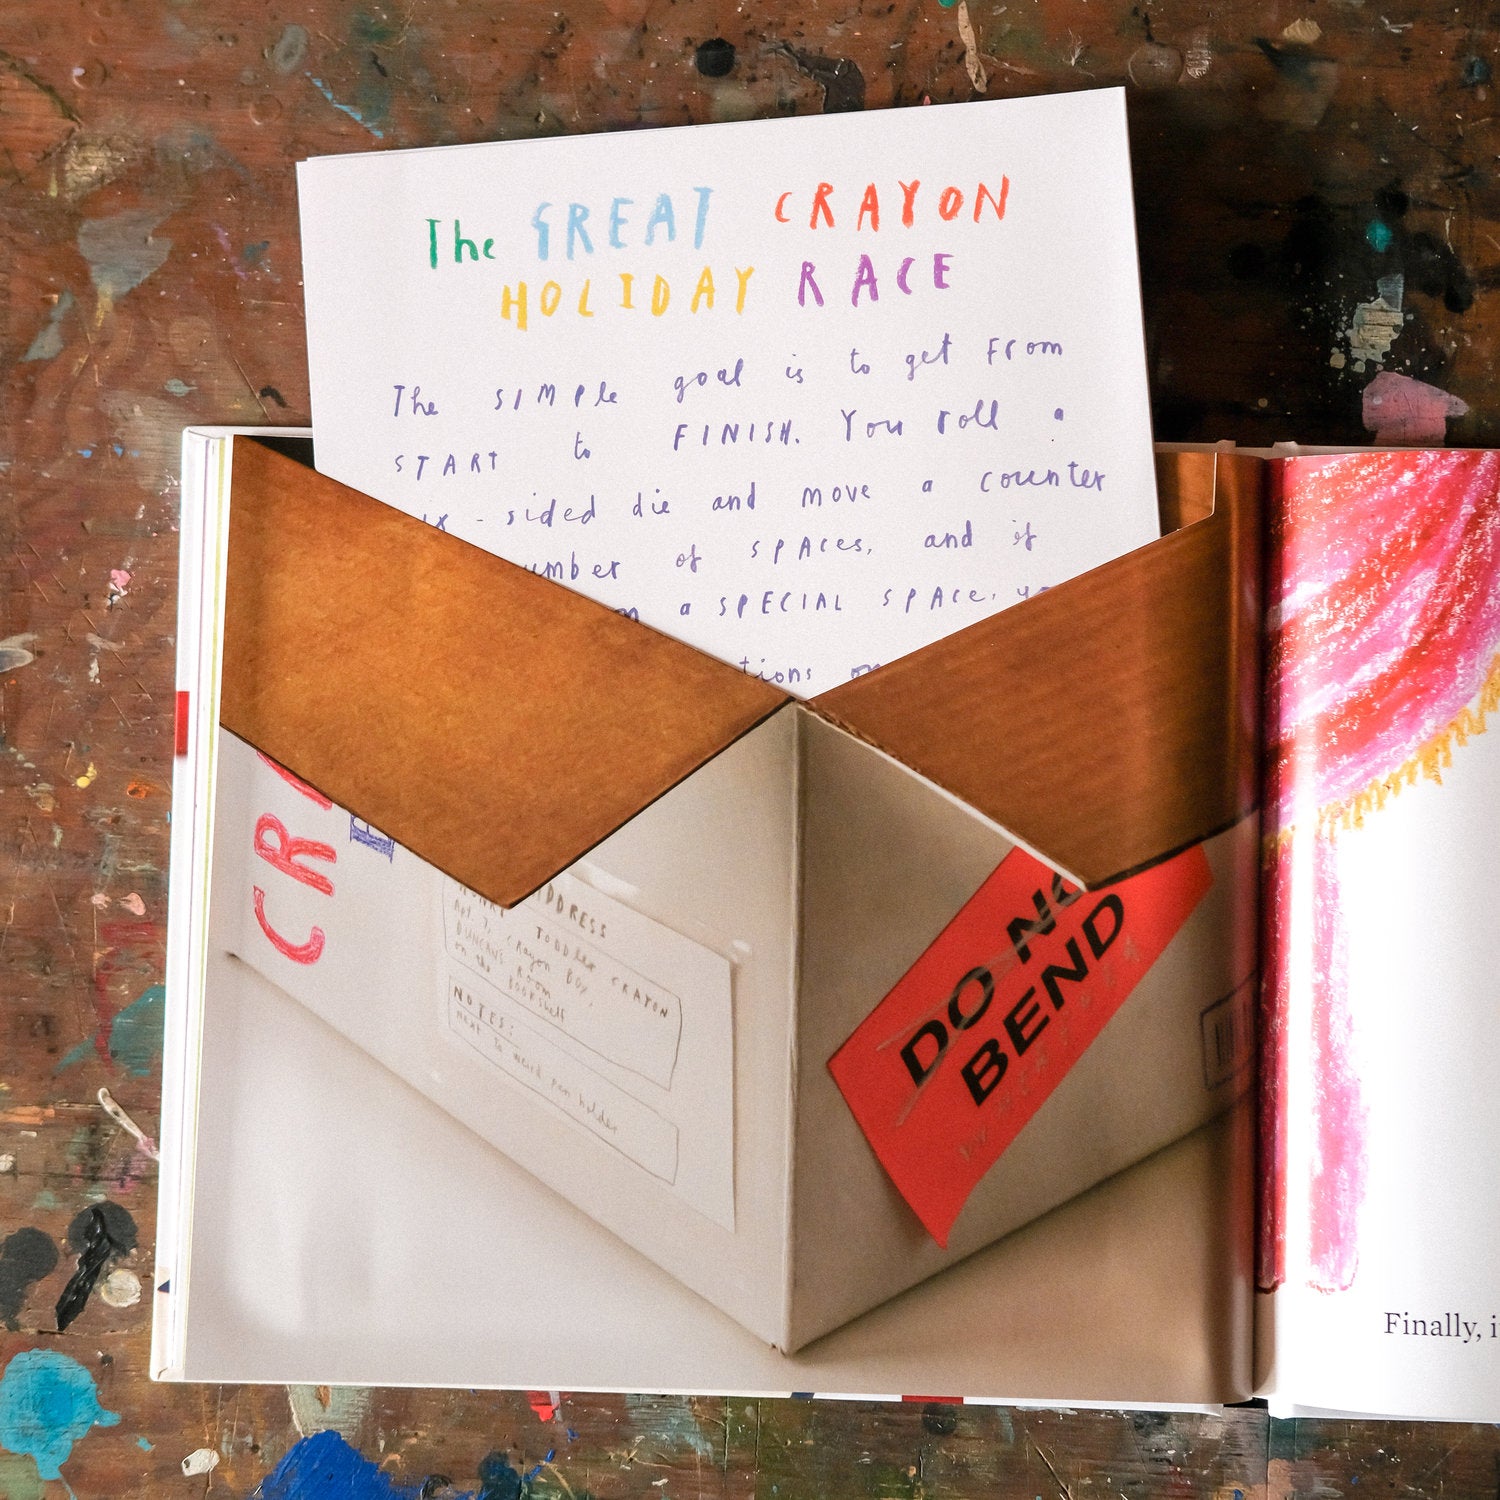 The GREAT CRAYON
HOLIDAY RACE
The SIMPle goal is to get From
START to FINISH. You roll a
- sided die and move a counter
of SPAces, and if
a SPECIAL SPAce,
CRA
ADDRESS
TODDler CRAYON
Apt. 7, Crayon BOX,
DUNCAN'S ROOM
on the BOOKShelf
NOTES:
next to weird pen holder
DO NO
BEND
Finally, i